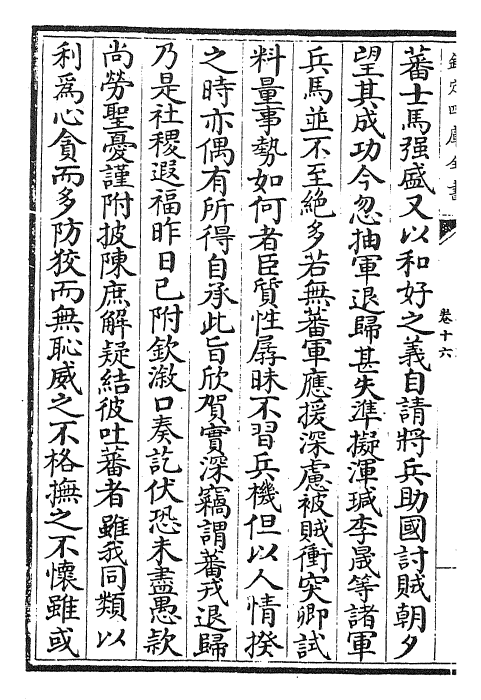 欽定四庫全書
卷十六
蕃士馬强盛又以和好之義自請將兵助國討賊朝夕
望其成功今忽抽軍退歸甚失準擬渾瑊李晟等諸軍
兵馬並不至絶多若無蕃軍應援深慮被賊衝突卿試
料量事勢如何者臣質性孱昧不習兵機但以人情揆
之時亦偶有所得自承此旨欣賀實深竊謂蕃戎退歸
乃是社稷遐福昨日已附欽溆口奏訖伏恐未盡愚款
尚勞聖憂謹附披陳庶解疑結彼吐蕃者雖我同類以
利爲心貪而多防狡而無恥威之不格撫之不懷雖或